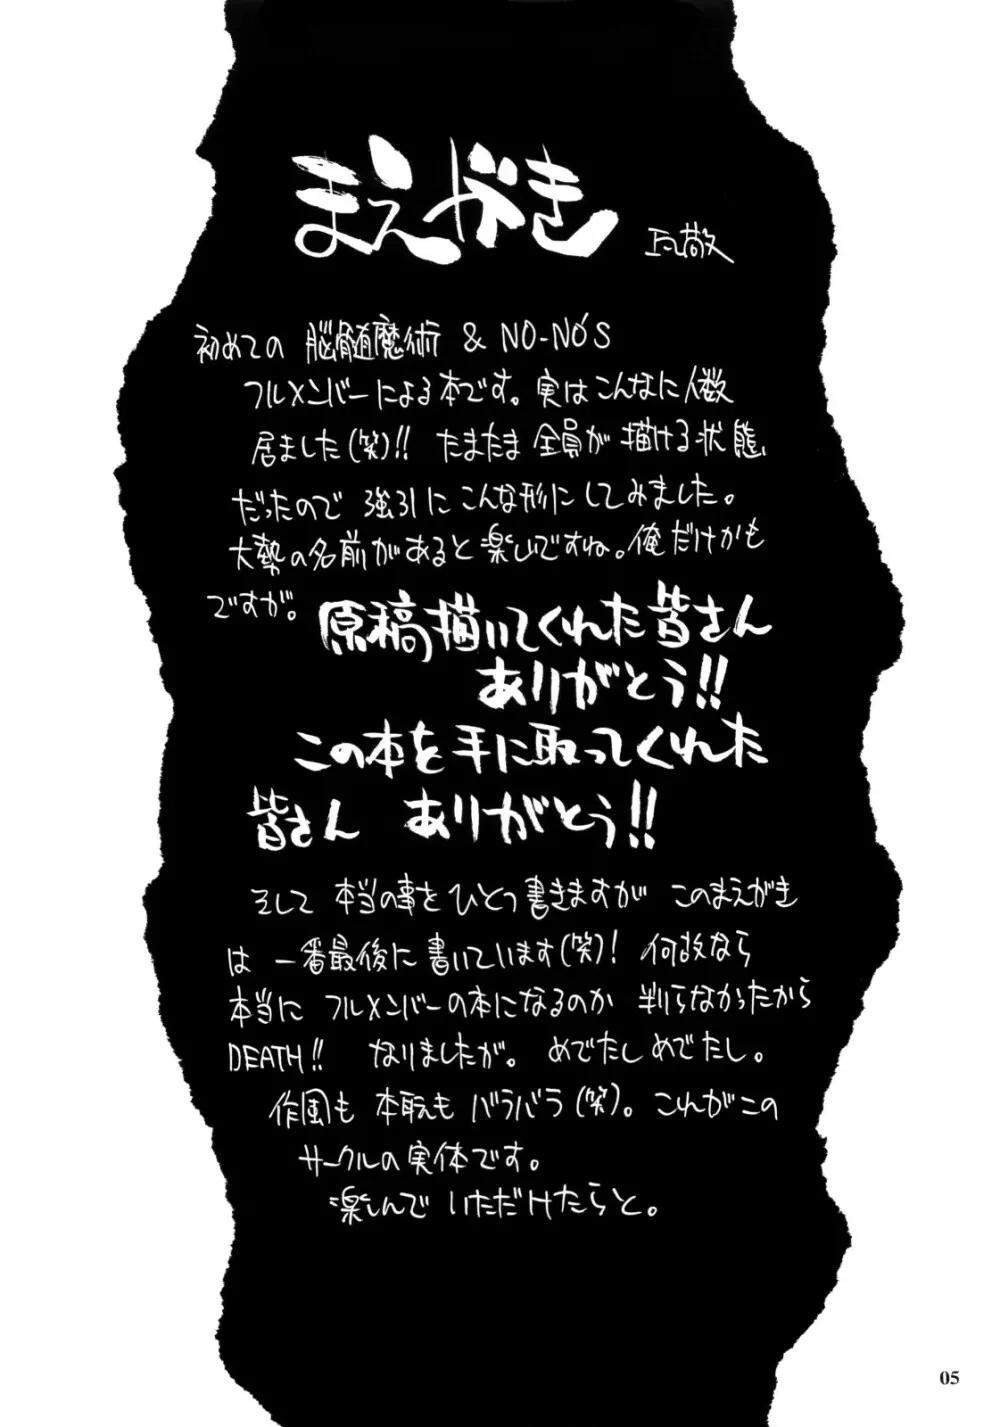 まえがき
敬
初めての 脳髄魔術 & NO-NO'S
フルメンバーによる本です。実はこんなに人数
居ました(笑)!! たまたま全員が描ける状態
だったので 強引にこんな形にしてみました。
大勢の名前があると楽しいですね。俺だけかも
ですが。
原稿描いてくれた皆さん
ありがとう!!
この本を手に取ってくれた
皆さん ありがとう!!
そして 本当の事をひとつ書きますが このまえがき
は 一番最後に書いています(笑)! 何故なら
本当に フルメンバーの本になるのか 判らなかったから
DEATH!! なりましたが。 めでたしめでたし。
作風も 本職も バラバラ(笑)。これがこの
サークルの実体です。
楽しんで いただけたらと。
05